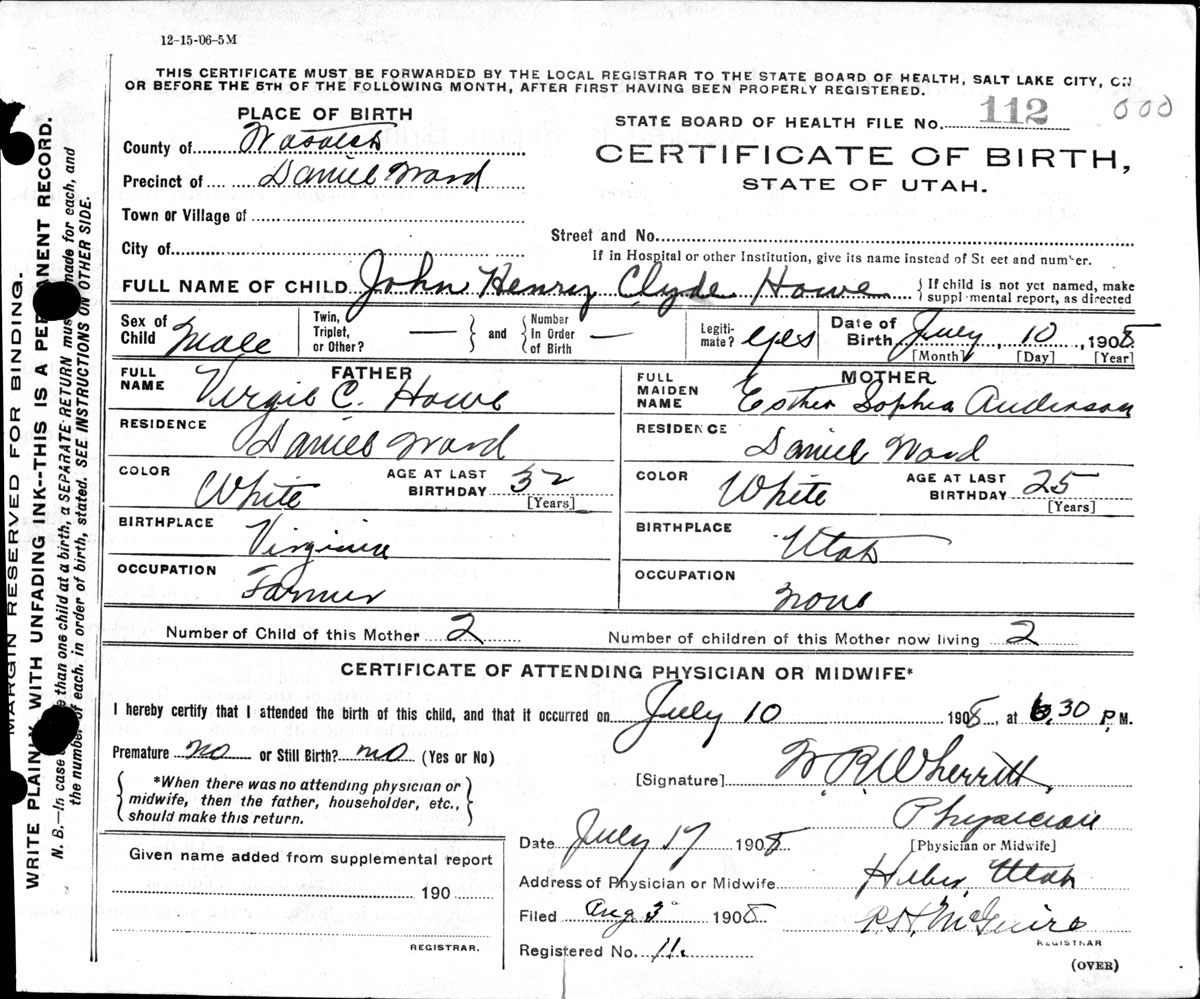 12-15-06-5M
THIS CERTIFICATE MUST BE FORWARDED BY THE LOCAL REGISTRAR TO THE STATE BOARD OF HEALTH, SALT LAKE CITY, ON
OR BEFORE THE 5TH OF THE FOLLOWING MONTH, AFTER FIRST HAVING BEEN PROPERLY REGISTERED.
PLACE OF BIRTH
STATE BOARD OF HEALTH FILE No. 112 000
County of Wasatch
CERTIFICATE OF BIRTH,
Precinct of Daniel Ward
STATE OF UTAH.
Town or Village of
Street and No.
City of
If in Hospital or other Institution, give its name instead of St eet and number.
FULL NAME OF CHILD John Henry Clyde Howe { If child is not yet named, make
suppl mental report, as directed
Sex of Child Male Twin, Triplet, or Other? — } and { Number in Order of Birth — Legiti- mate? Yes Date of Birth July 10, 1908
[Month] [Day] [Year]
FATHER MOTHER
FULL NAME Virgie C. Howe FULL MAIDEN NAME Esther Sophia Anderson
RESIDENCE Daniel Ward RESIDENCE Daniel Ward
COLOR White AGE AT LAST BIRTHDAY 32 [Years] COLOR White AGE AT LAST BIRTHDAY 25 [Years]
BIRTHPLACE Virginia BIRTHPLACE Utah
OCCUPATION Farmer OCCUPATION None
Number of Child of this Mother 2 Number of children of this Mother now living 2
CERTIFICATE OF ATTENDING PHYSICIAN OR MIDWIFE*
I hereby certify that I attended the birth of this child, and that it occurred on July 10 1908, at 6,30 P.M.
Premature no or Still Birth? no (Yes or No)
[Signature] W R Wherritt
*When there was no attending physician or
midwife, then the father, householder, etc.,
should make this return.
Physician
[Physician or Midwife]
Date July 17 1908
Address of Physician or Midwife Heber, Utah
Filed Aug 3 1908 R.H. McGuire
REGISTRAR
Registered No. 11.
(OVER)
Given name added from supplemental report
190
REGISTRAR.
MARGIN RESERVED FOR BINDING.
WRITE PLAINLY WITH UNFADING INK--THIS IS A PERMANENT RECORD.
N. B.—In case than one child at a birth, a SEPARATE RETURN must made for each, and
the number of each, in order of birth, stated. SEE INSTRUCTIONS ON OTHER SIDE.